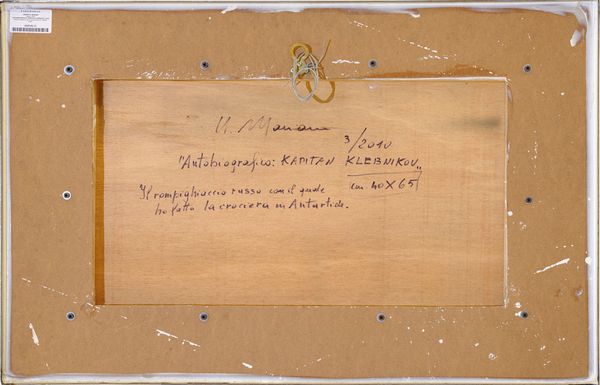 U. Mariani
3/2010
"Autobiografico: KAPITAN KLEBNIKOV"
cm 40X65
Il rompighiaccio russo con il quale
ho fatto la crociera in Antartide.